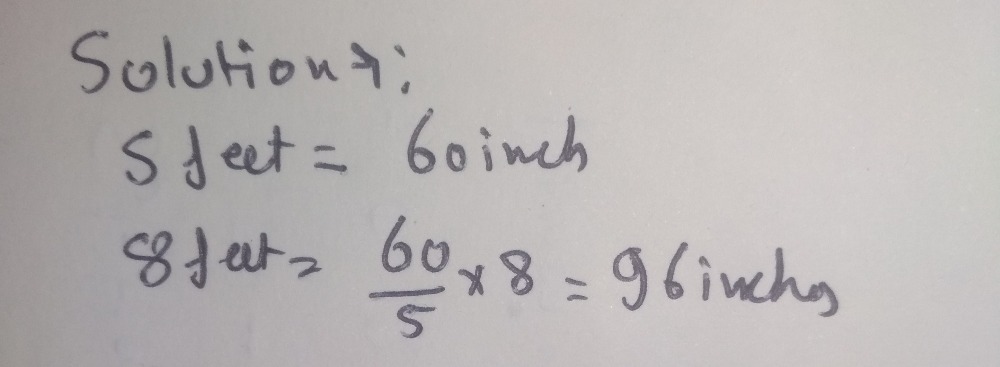 Solution→:
5 feet = 60 inch
8 feet = 60/5 x 8 = 96 inches